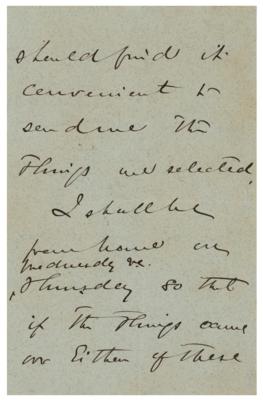 should find it
convenient to
send me the
things we selected,
I shall be
from home on
Wednesday &
Thursday so that
if the things came
on Either of these